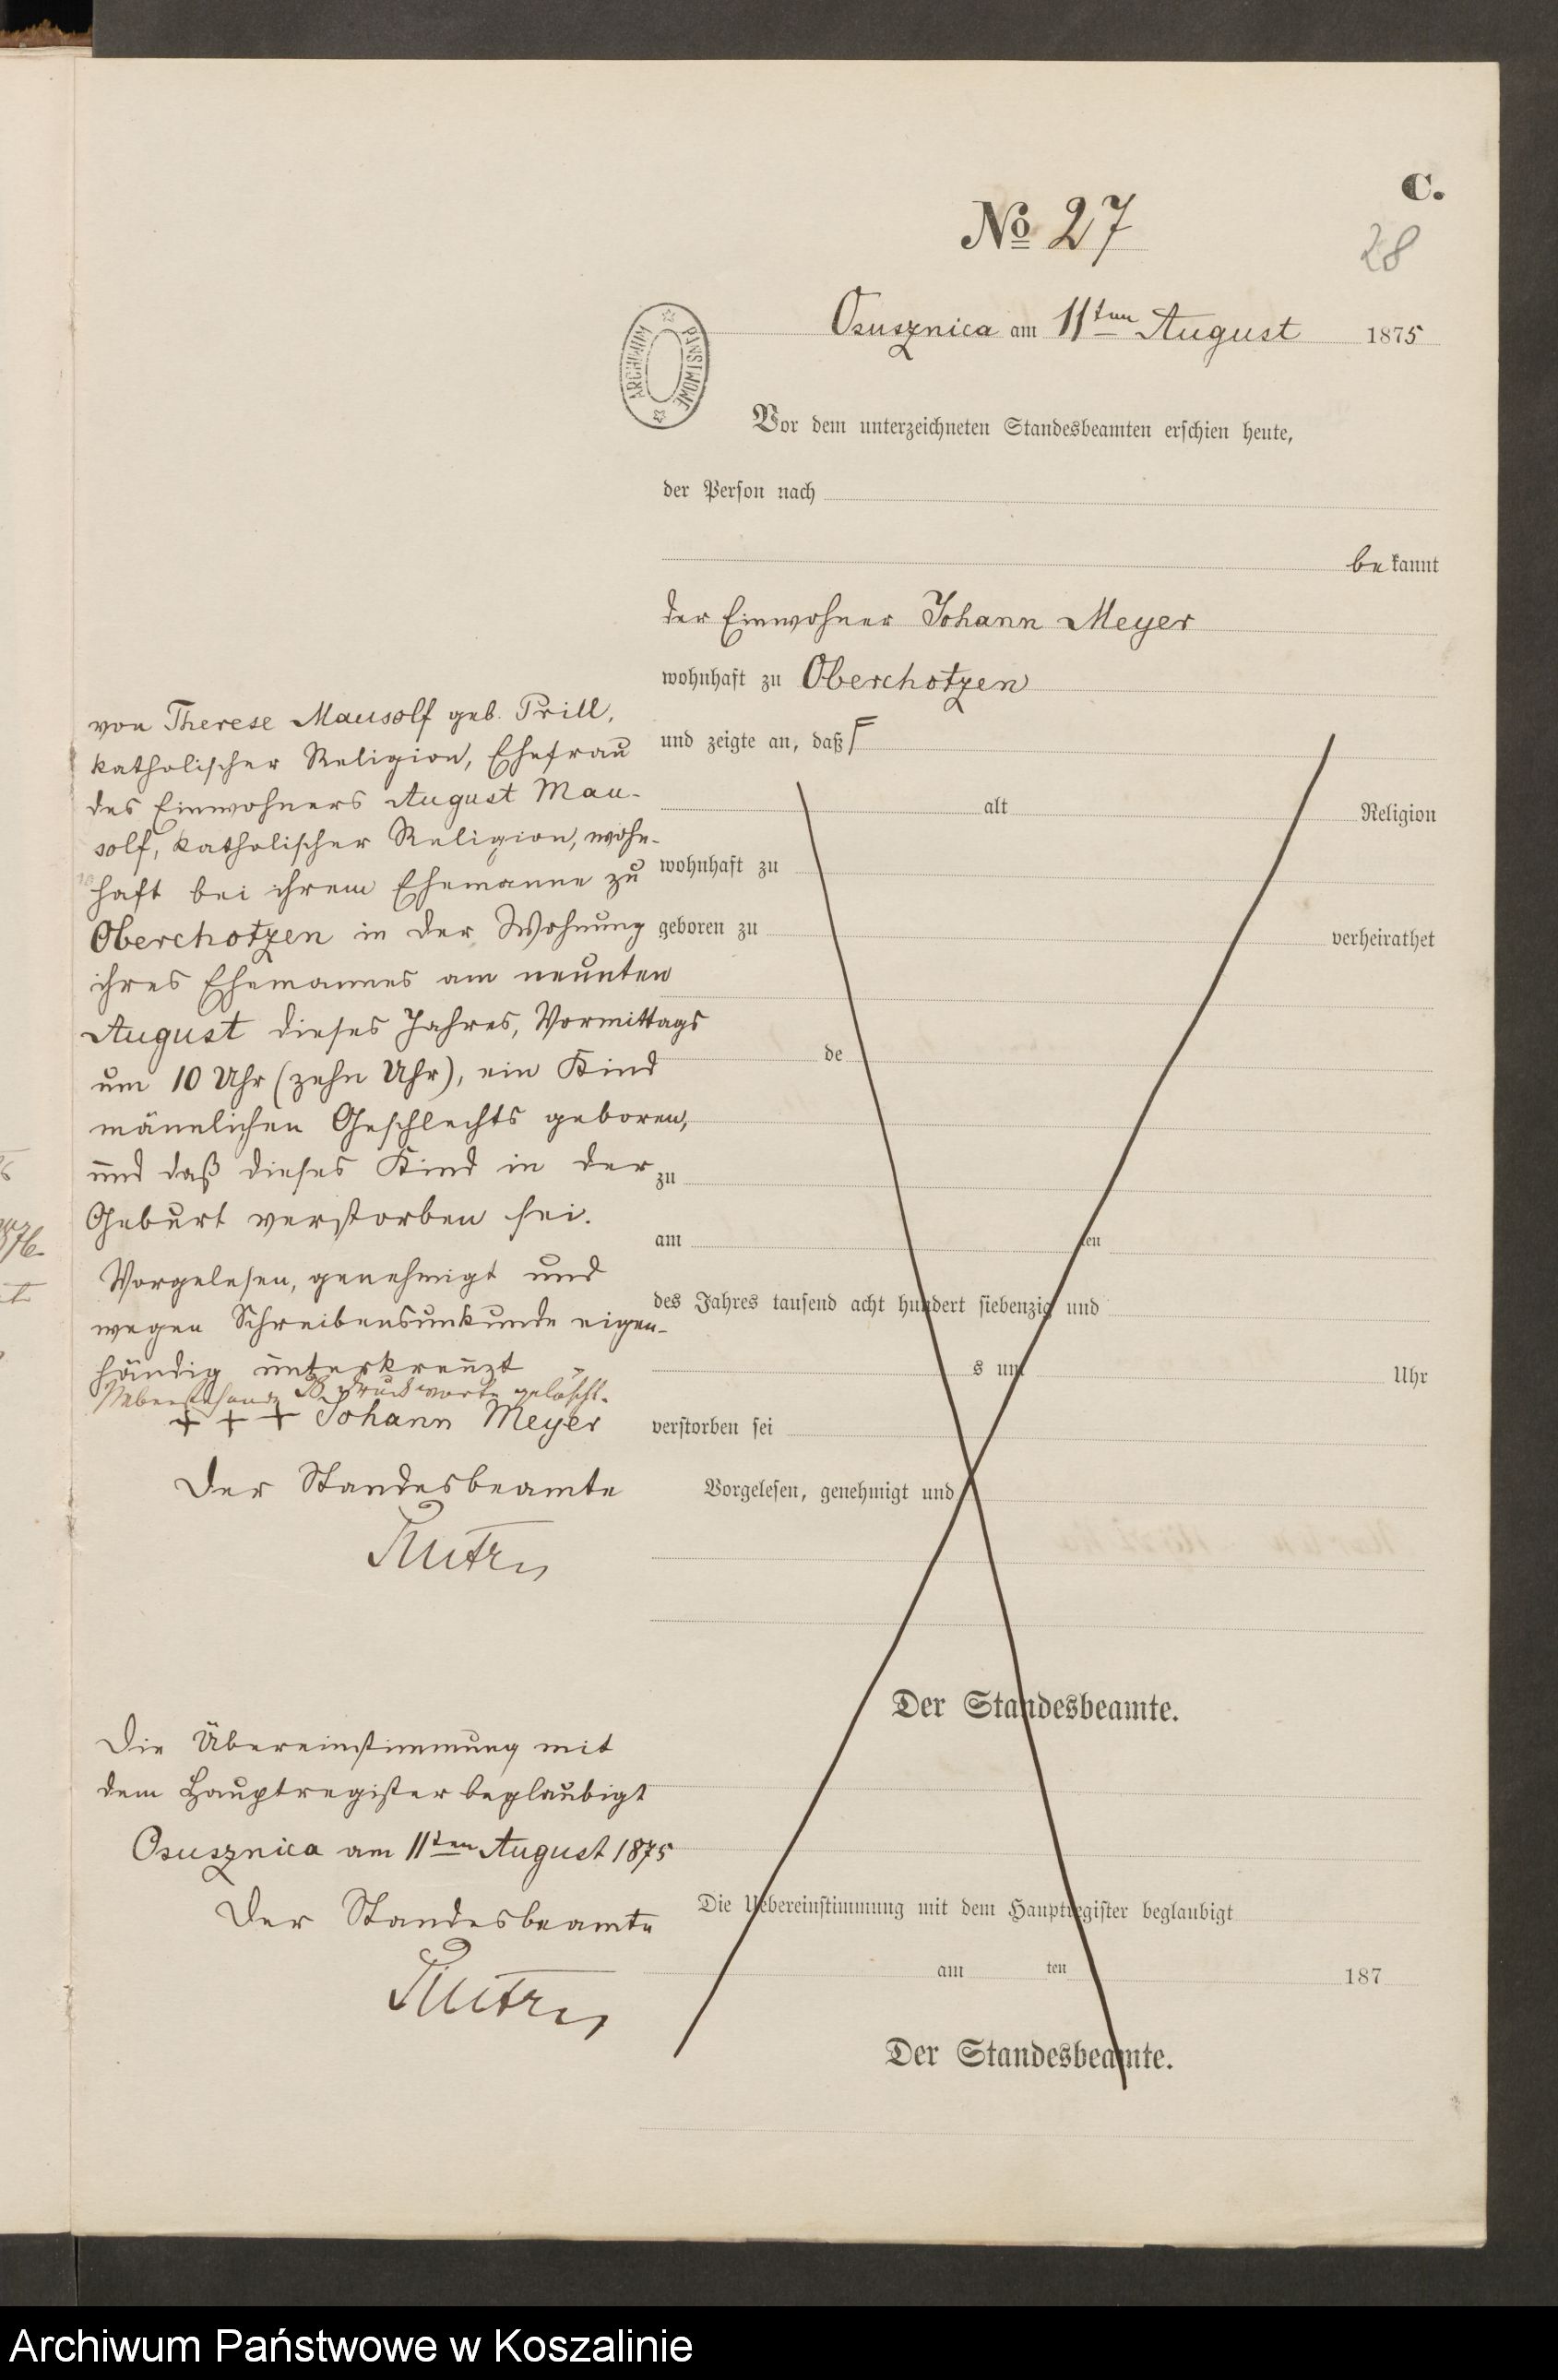 C.
No 27
28
Osusznica am 11ten August 1875
ARCHIWUM PAŃSTWOWE
Vor dem unterzeichneten Standesbeamten erschien heute,
der Person nach
be kannt
der Einwohner Johann Meyer
wohnhaft zu Oberchotzen
und zeigte an, daß
von Therese Mausolf geb. Prill,
katholischer Religion, Ehefrau
des Einwohners August Mau-
solf, katholischer Religion, wohn-
haft bei ihrem Ehemanne zu
Oberchotzen in der Wohnung
ihres Ehemannes am neunten
August dieses Jahres, Vormittags
um 10 Uhr (zehn Uhr), ein Kind
männlichen Geschlechts geboren,
und daß dieses Kind in der
Geburt verstorben sei.
Vorgelesen, genehmigt und
wegen Schreibensunkunde eigen-
händig unterkreuzt
Nebenstehende Druckworte gelöscht.
+ + + Johann Meyer
Der Standesbeamte
alt Religion
wohnhaft zu
geboren zu
verheirathet
de
zu
am ten
des Jahres tausend acht hundert siebenzig und
s um Uhr
verstorben sei
Vorgelesen, genehmigt und
Der Standesbeamte.
Die Übereinstimmung mit
dem Hauptregister beglaubigt
Osusznica am 11ten August 1875
Der Standesbeamte
Die Uebereinstimmung mit dem Hauptregister beglaubigt
am ten 187
Der Standesbeamte.
Archiwum Państwowe w Koszalinie